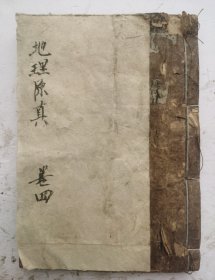 地理陳真
卷四